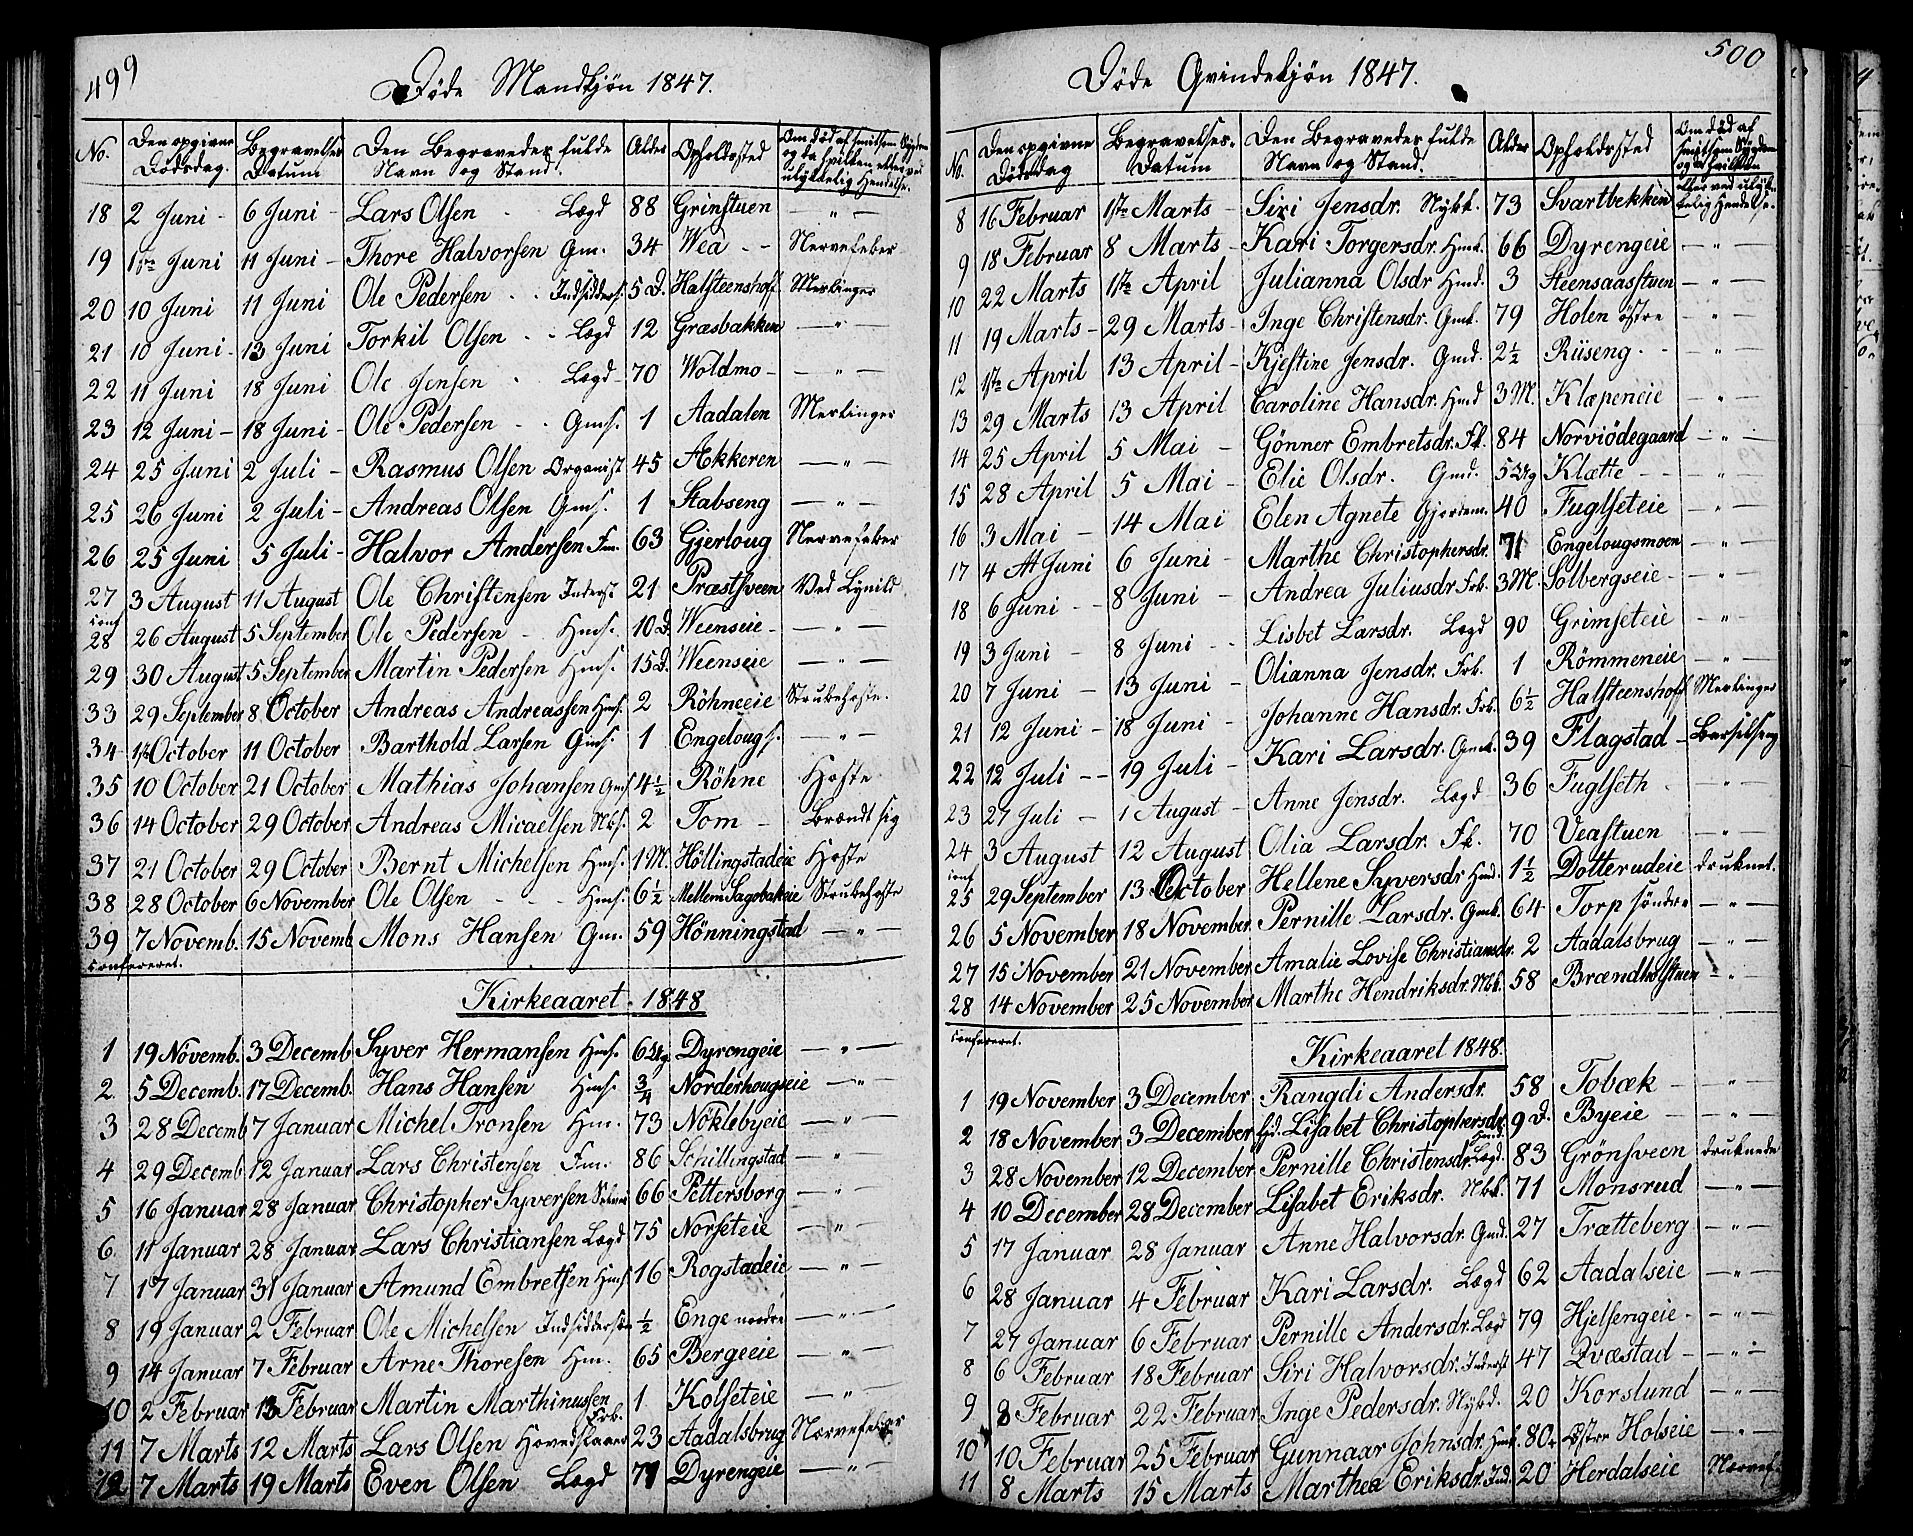 499
Döde Mandkjön 1847.
No. Den opgivne Dödsdag. Begravelses Datum Den Begravedes fulde Navn og Stand. Alder Opholdssted Om död af smitsom Sygdom og da hvilken eller ved ulykkelig Hendelse.
18 2 Juni - 6 Juni - Lars Olsen - Lægd 88 Grinstuen — „ —
19 1ste Juni 11 Juni - Thore Halvorsen Gm. 34 Wea - - Nervefeber
20 10 Juni 11 Juni Ole Pedersen - - Indsidders. 5 D. Halsteenshoff Merlinger
21 10 Juni - 13 Juni Torkil Olsen - - Lægd 12 Græsbakken — „ —
22 11 Juni 18 Juni Ole Jensen - Lægd 70 Woldmo - — „ —
23 12 Juni - 18 Juni - Ole Pedersen - - Gms. 1 Aadalen Merlinger
24 25 Juni 2 Juli - Rasmus Olsen Organist 45 Akkeren — „ —
25 26 Juni 2 Juli - Andreas Olsen Gms. 1 Stabseng — „ —
26 25 Juni 5 Juli - Halvor Andersen Fm. 63 Gjerloug Nervefeber
27 3 August 11 August Ole Christensen Inderst 21 Præstsveen Ved Lynild
conf
28 26 August 5 September Ole Pedersen - Hms. 10 D. Weenseie - — „ —
29 30 August 5 September Martin Pedersen Hms. 15 D. Weenseie — „ —
33 29 September 8 October Andreas Andreassen Hms. 2 Röhneeie Strubehoste.
34 1ste October 11 October Barthold Larsen Gms. 1 Engelougs. — „ —
35 10 October 21 October Mathias Johansen Gms. 4½ Röhne Hoste
36 14 October 29 October Andreas Micaelsen Nbs. 2 Tom - Brændt sig
37 21 October 29 October Bernt Michelsen Hms. 1 M. Höllingstadeie Hoste
38 28 October 6 November Ole Olsen - - - Hms. 6½ Mellem Sagobakeie Strubehoste
39 7 Novemb. 15 Novemb Mons Hansen Gm. 59 Hönningstad — „ —
confereret.
Kirkeaaret 1848
1 19 Novemb. 3 Decemb Syver Hermansen Hms. 6 Ug Dyrengeie — „ —
2. 5 Decemb. 17 Decemb. Hans Hansen Hms. ¾ Norderhougseie — „ —
3 28 Decemb 7 Januar Michel Tronsen Hm. 73 Nöklebyeie — „ —
4 29 Decemb 12 Januar Lars Christensen Fm. 86 Schillingstad — „ —
5 16 Januar 28 Januar Christopher Syversen 66 Pettersborg — „ —
6. 11 Januar 28 Januar Lars Christiansen Lægd 75 Norseteie — „ —
7 17 Januar 31 Januar Amund Embretsen Hms. 16 Rogstadeie — „ —
8 19 Januar 2 Februar Ole Michelsen Indsiddersön ½ Enge nordre — „ —
9 14 Januar 7 Februar Arne Thoresen Hm. 65 Bergeeie — „ —
10 2 Februar 13 Februar Martin Marthinussen Frb. 1 Kolseteie — „ —
11 7 Marts 12 Marts Lars Olsen Hovedslaaer 23 Aadalsbrug Nervefeber
12 7 Marts 19 Marts Even Olsen Lægd 71 Dyrengeie — „ —
500
Döde Qvindekjön 1847.
No. Den opgivne Dödsdag Begravelses-Datum Den Begravedes fulde Navn og Stand. Alder Opholdssted Om död af smitsom Sygdom og da hvilken eller ved ulykkelig Hendelse.
8 16 Februar 1ste Marts - Siri Jensdr. Nykk. 73 Svartbekken
9 18 Februar 8 Marts - Kari Torgersdr. Hmk. 66 Dyrengeie — „ —
10 22 Marts 1ste April Julianna Olsdr Hmd. 3 Steensaasstuen — „ —
11 19 Marts - 29 Marts - Inge Christensdr. Gmk. 79 Holen östre — „ —
12 1ste April 13 April - Kjestine Jensdr. Gmd. 2½ Riiseng - - — „ —
13 29 Marts 13 April Caroline Hansdr. Hmd 3 M. Klæpeneie — „ —
14 25 April 5 Mai - Gönner Embretsdr. Fk. 84 Norviödegaard — „ —
15 28 April 5 Mai - Elie Olsdr. Gmd. 5 Ug Klætte - - — „ —
16 3 Mai - 14 Mai Elen Agnete Gjordem. 40 Fuglseteie — „ —
17 4 Juni 6 Juni - Marthe Christophersdr. 71 Engelougsmoen — „ —
18 6 Juni - - 8 Juni - Andrea Juliusdr Frb. 3 M. Solbergseie - — „ —
19 3 Juni - 8 Juni - - Lisbet Larsdr. Lægd 90 Grimseteie — „ —
20 7 Juni - 13 Juni - Olianna Jensdr. Frb. 1 Römmeneie — „ —
21 12 Juni - 18 Juni - Johanne Hansdr. Frb. 6½ Halsteenshoff Merlinger
22 12 Juli - - 19 Juli - Kari Larsdr. Gmk. 39 Flagstad - Barselseng
23 27 Juli - 1 August - Anne Jensdr. Lægd 36 Fuglseth - — „ —
24 3 August 12 August Olia Larsdr. Fk. 70 Veastuen — „ —
conf
25 29 September 13 October Hellene Syversdr Hmd. 1½ Dotterudeie druknet.
26 5 November 18 November Pernille Larsdr. Gmk. 64 Torp söndre — „ —
27 15 November 21 November Amalie Lovise Christiansdr. 2 Aadalsbrug — „ —
28 14 November 25 November Marthe Hendriksdr. Nbk. 58 Brændholstuen — „ —
confereret.
Kirkeaaret 1848.
1 19 November 3 December Rangdi Andersdr. 58 Tobæk - — „ —
2 18 November 3 December Hd. Lisabet Christophersdr. Hmd. 9 D. Byeie - — „ —
3 28 November 12 December Pernille Christensdr. Lægd. 83 Grönsveen druknede
4 10 December 28 December Lisabet Eriksdr. Nbk. 71 Monsrud — „ —
5 17 Januar 28 Januar Anne Halvorsdr. Gmd. 27 Trætteberg — „ —
6 28 Januar 4 Februar Kari Larsdr. Lægd 62 Aadalseie — „ —
7 27 Januar 6 Februar Pernille Andersdr. Lægd 79 Hjelsengeie - — „ —
8 6 Februar 18 Februar Siri Halvorsdr. Inderst 47 Qvæstad - — „ —
9 8 Februar 22 Februar Inge Pedersdr. Nykd. 20 Korslund — „ —
10 10 Februar 25 Februar Gunnaar Johnsdr. Hmk. 80 Östre Holseie — „ —
11 8 Marts 15 Marts Marthea Eriksdr. Ind. 20 Herdalseie Nervef.